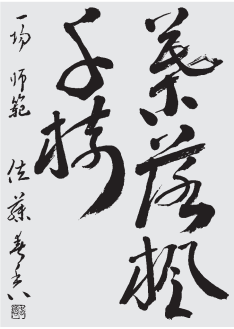 葉落楓
千樹
一場 師範 佐藤